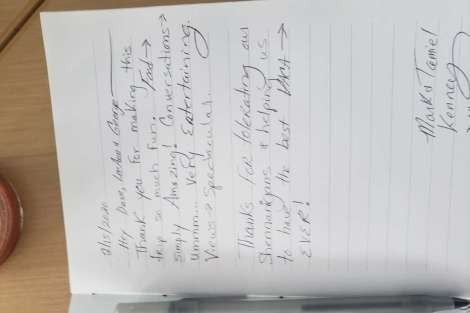 2/15/2020
Hey Dave, Lochan & George
Thank you for making this
trip so much fun. Food →
simply Amazing! Conversations →
Ummm.... Very Entertaining.
Views → Spectacular.
Thanks for tolerating our
Shennanigans & helping us
to have the best →
EVER!
Mark & Tamiel
Kenney